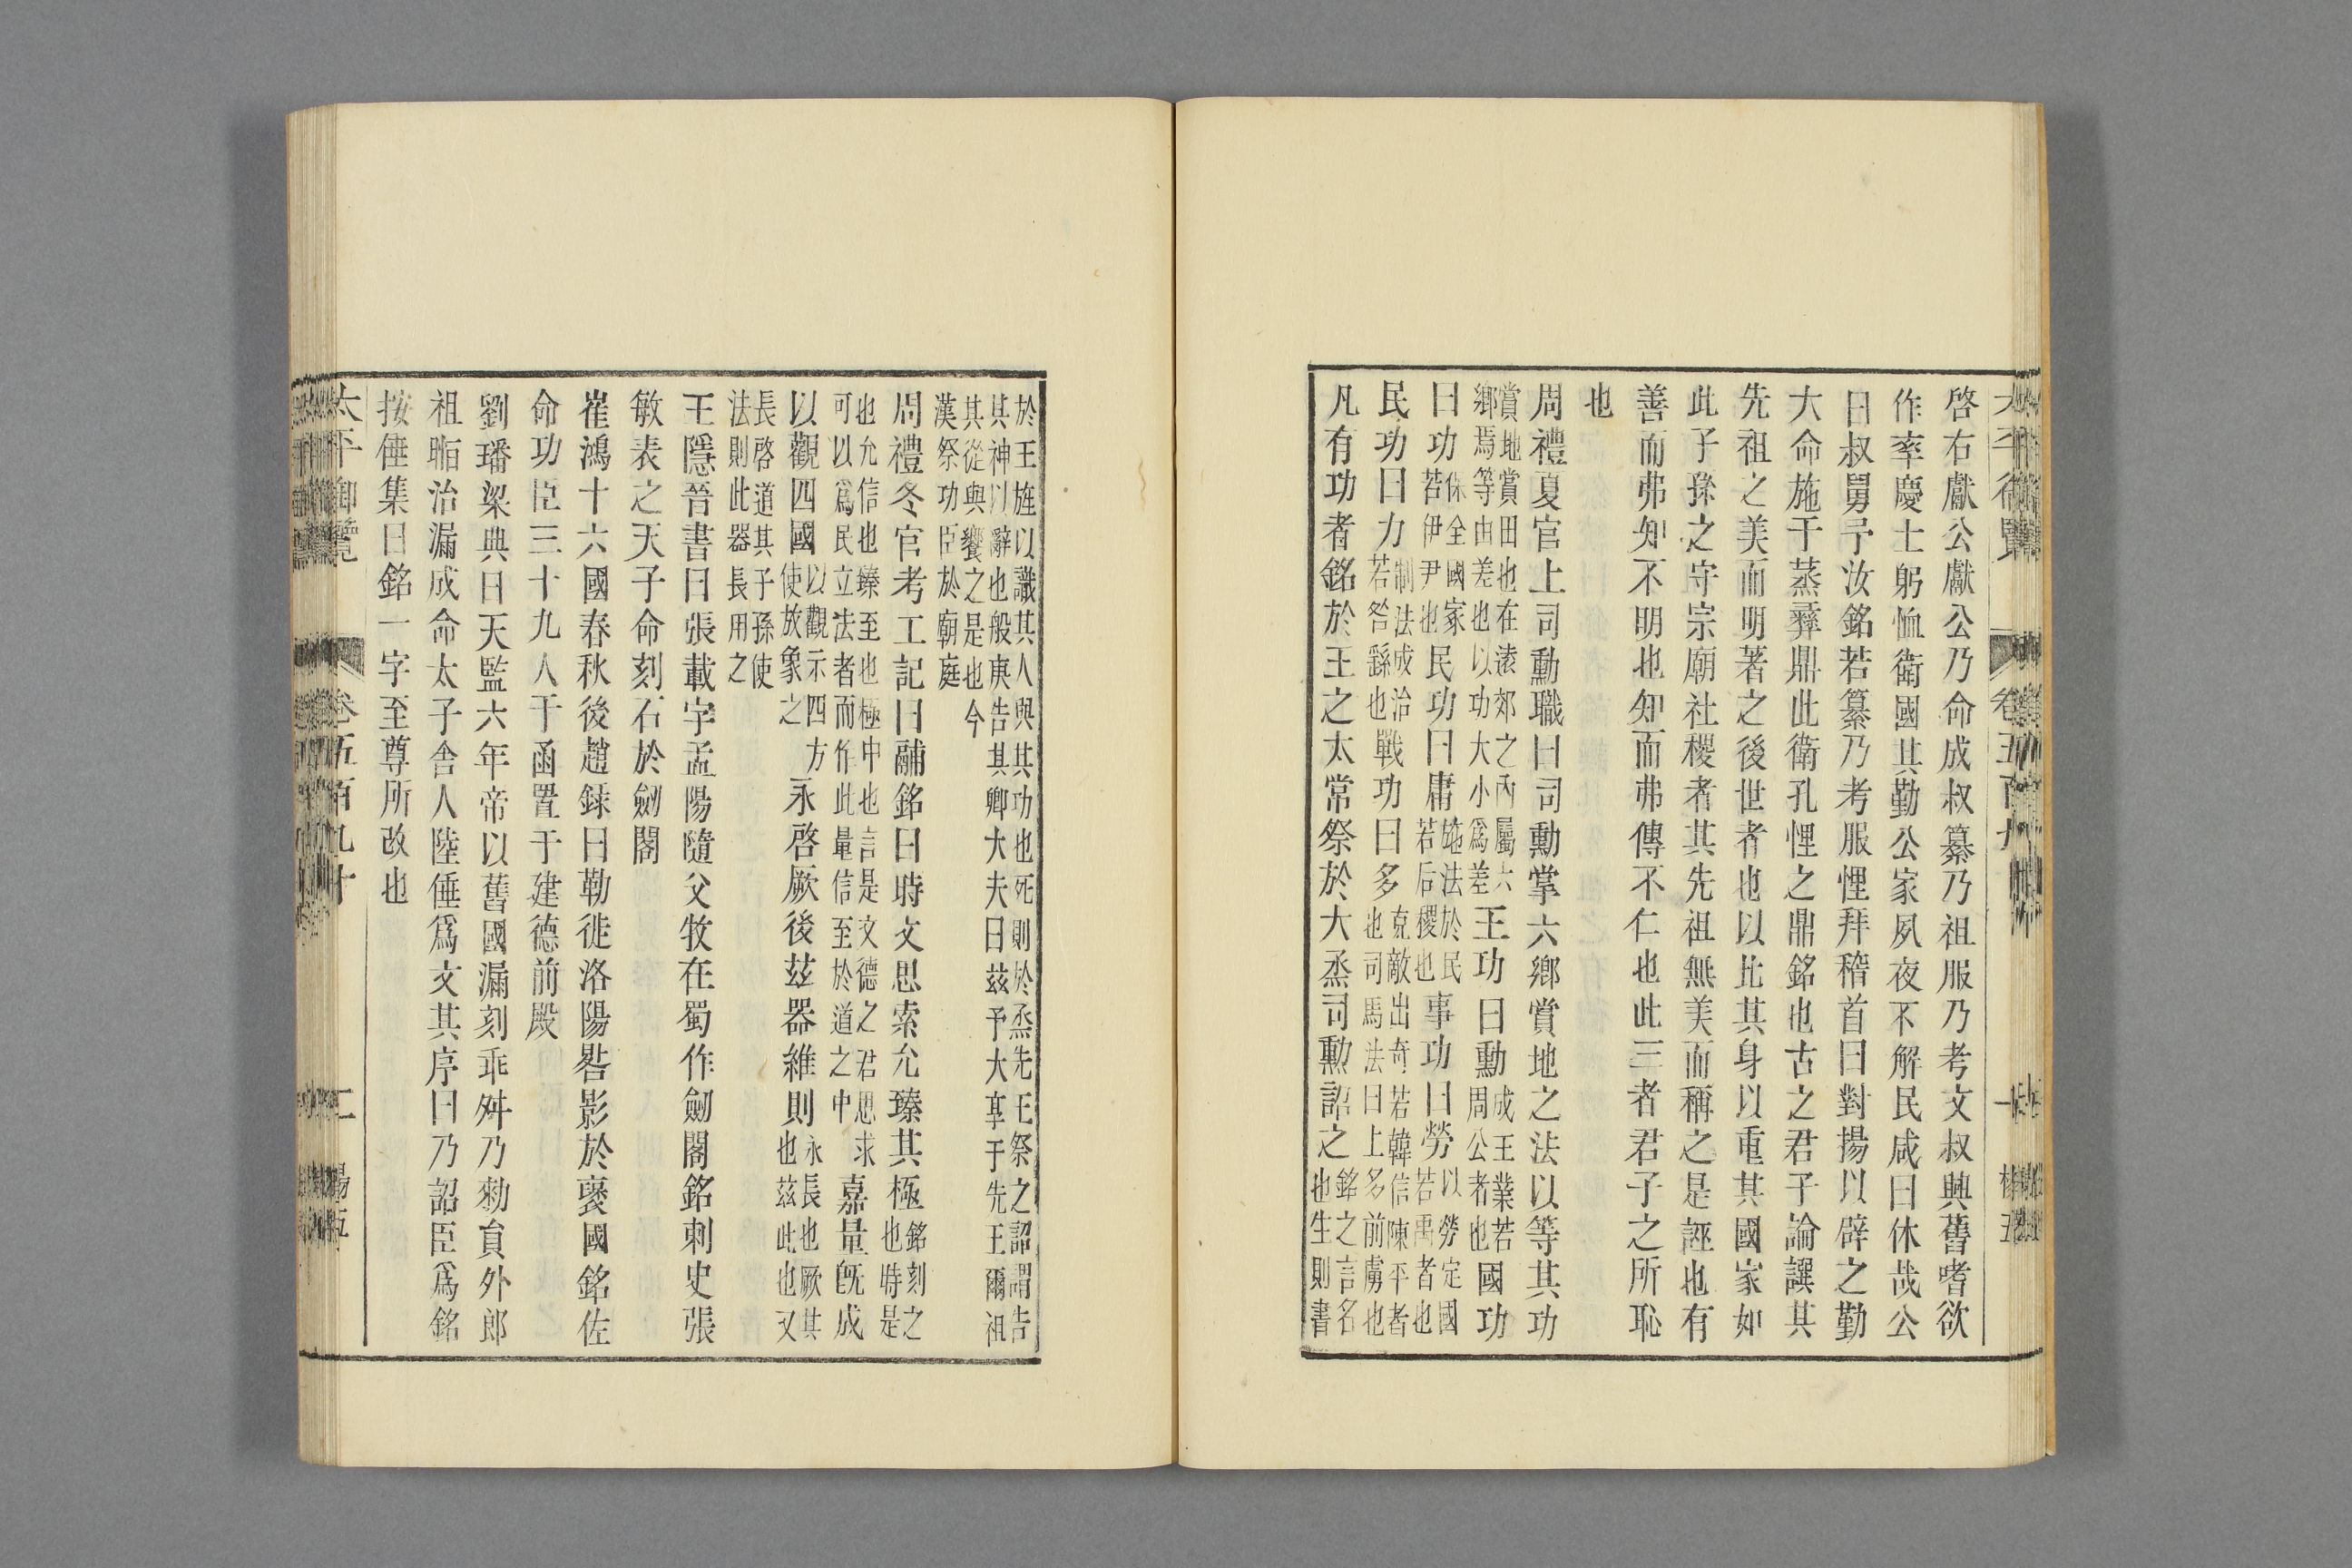 啓右獻公獻公乃命成叔纂乃祖服乃考文叔興舊嗜欲
作率慶士躬恤衛國其勤公家夙夜不解民咸曰休哉公
曰叔舅予汝銘若纂乃考服悝拜稽首曰對揚以辟之勤
大命施于蒸彝鼎此衛孔悝之鼎銘也古之君子論譔其
先祖之美而明著之後世者也以比其身以重其國家如
此子孫之守宗廟社稷者其先祖無美而稱之是誣也有
善而弗知不明也知而弗傳不仁也此三者君子之所恥
也
周禮夏官上司勳職曰司勳掌六鄉賞地之法以等其功
賞地賞田也在遠郊之內屬六
鄉焉等由差也以功大小爲差王功曰勳成王業若
周公者也國功
曰功保全國家
若伊尹也民功曰庸施法於民
若后稷也事功曰勞以勞定國
若禹者也
民功曰力制法成治
若咎繇也戰功曰多克敵出奇若韓信陳平者
也司馬法曰上多前虜也
凡有功者銘於王之太常祭於大烝司勳詔之銘之言名
也生則書
於王旌以識其人與其功也死則於烝先王祭之詔謂告
其神以辭也般庚告其卿大夫曰茲予大享于先王爾祖
其從與饗之是也今
漢祭功臣於廟庭
周禮冬官考工記曰䰝銘曰時文思索允臻其極銘刻之
也時是
也允信也臻至也極中也言是文德之君思求
可以爲民立法者而作此量信至於道之中嘉量旣成
以觀四國以觀示四方
使放象之永啓厥後茲器維則永長也厥其
也茲此也又
長啓道其子孫使
法則此器長用之
王隱晉書曰張載字孟陽隨父牧在蜀作劒閣銘刺史張
敏表之天子命刻石於劒閣
崔鴻十六國春秋後趙錄曰勒徙洛陽晷影於襄國銘佐
命功臣三十九人于函置于建德前殿
劉璠梁典曰天監六年帝以舊國漏刻乖舛乃勑員外郎
祖暅治漏成命太子舍人陸倕爲文其序曰乃詔臣爲銘
按倕集曰銘一字至尊所改也
太平御覽 卷五百九十 二